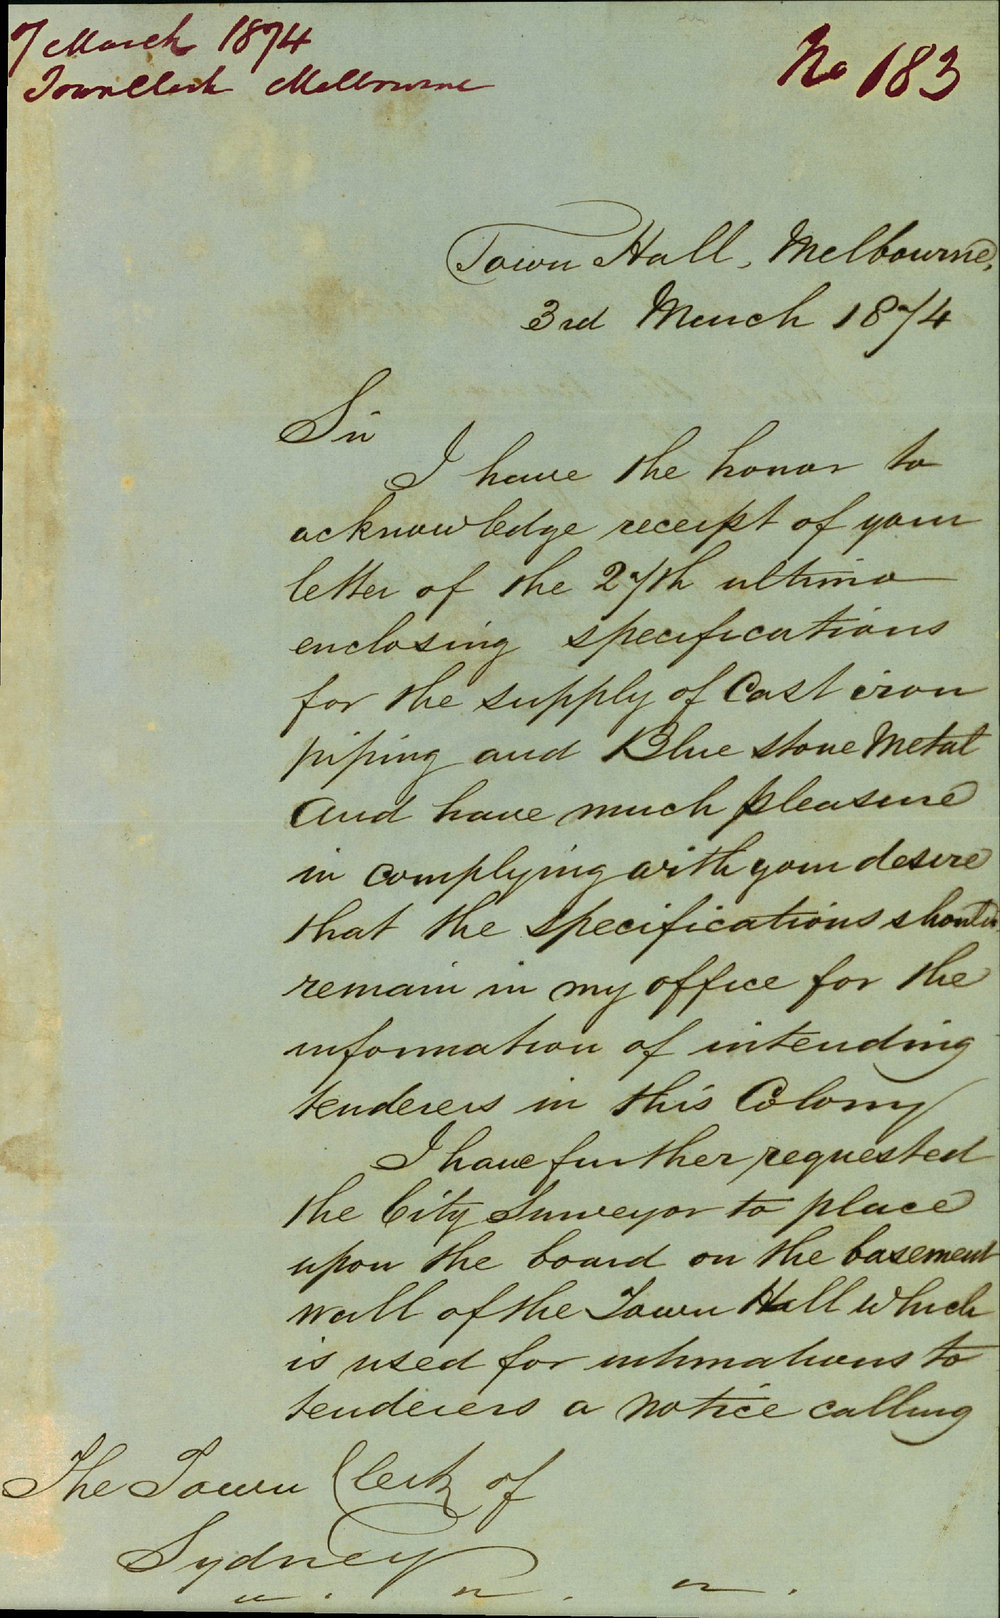 7 March 1874
Town Clerk Melbourne
No 183
Town Hall, Melbourne,
3rd March 1874
Sir
I have the honor to
acknowledge receipt of your
letter of the 27th ultimo
enclosing specifications
for the supply of Cast iron
piping and Blue stone Metal
And have much pleasure
in complying with your desire
that the specifications should
remain in my office for the
information of intending
tenderers in this Colony
I have further requested
the City Surveyor to place
upon the board on the basement
wall of the Town Hall which
is used for intimations to
tenderers a notice calling
The Town Clerk of
Sydney